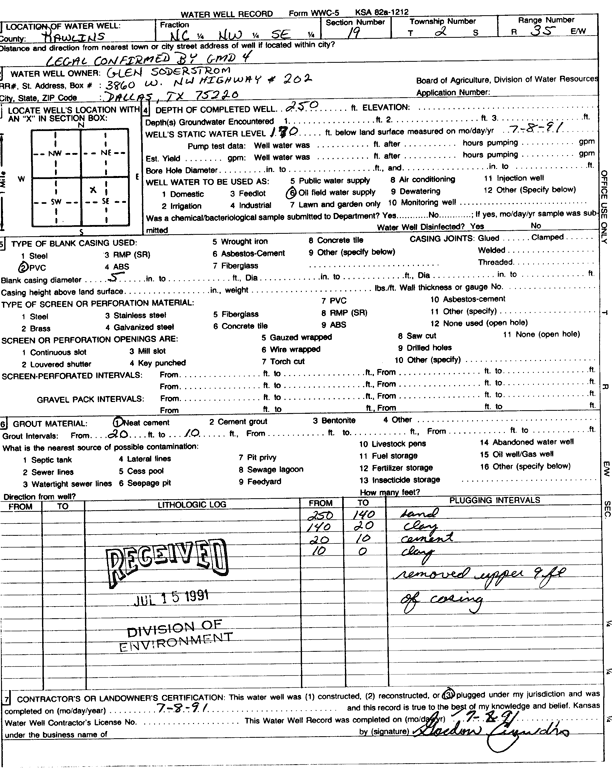 WATER WELL RECORD Form WWC-5 KSA 82a-1212
1 LOCATION OF WATER WELL: Fraction Section Number Township Number Range Number
County: RAWLINS NC ¼ NW ¼ SE ¼ 19 T 2 S R 35 E/W
Distance and direction from nearest town or city street address of well if located within city?
LEGAL CONFIRMED BY GMD 4
2 WATER WELL OWNER: GLEN SODERSTROM
RR#, St. Address, Box # : 3860 W. NW HIGHWAY # 202 Board of Agriculture, Division of Water Resources
City, State, ZIP Code : DALLAS, TX 75220 Application Number:
LOCATE WELL'S LOCATION WITH AN "X" IN SECTION BOX:
N
NW NE
W E
X
SW SE
S
1 Mile
4 DEPTH OF COMPLETED WELL 250 ft. ELEVATION:
Depth(s) Groundwater Encountered 1. ft. 2. ft. 3. ft.
WELL'S STATIC WATER LEVEL 180 ft. below land surface measured on mo/day/yr 7-8-91
Pump test data: Well water was ft. after hours pumping gpm
Est. Yield gpm: Well water was ft. after hours pumping gpm
Bore Hole Diameter in. to ft., and in. to ft.
WELL WATER TO BE USED AS: 5 Public water supply 8 Air conditioning 11 Injection well
1 Domestic 3 Feedlot 6 Oil field water supply 9 Dewatering 12 Other (Specify below)
2 Irrigation 4 Industrial 7 Lawn and garden only 10 Monitoring well
Was a chemical/bacteriological sample submitted to Department? Yes No ; If yes, mo/day/yr sample was submitted Water Well Disinfected? Yes No
5 TYPE OF BLANK CASING USED: 5 Wrought iron 8 Concrete tile CASING JOINTS: Glued Clamped
1 Steel 3 RMP (SR) 6 Asbestos-Cement 9 Other (specify below) Welded
2 PVC 4 ABS 7 Fiberglass Threaded
Blank casing diameter 5 in. to ft., Dia in. to ft., Dia in. to ft.
Casing height above land surface in., weight lbs./ft. Wall thickness or gauge No.
TYPE OF SCREEN OR PERFORATION MATERIAL: 7 PVC 10 Asbestos-cement
1 Steel 3 Stainless steel 5 Fiberglass 8 RMP (SR) 11 Other (specify)
2 Brass 4 Galvanized steel 6 Concrete tile 9 ABS 12 None used (open hole)
SCREEN OR PERFORATION OPENINGS ARE: 5 Gauzed wrapped 8 Saw cut 11 None (open hole)
1 Continuous slot 3 Mill slot 6 Wire wrapped 9 Drilled holes
2 Louvered shutter 4 Key punched 7 Torch cut 10 Other (specify)
SCREEN-PERFORATED INTERVALS: From ft. to ft., From ft. to ft.
From ft. to ft., From ft. to ft.
GRAVEL PACK INTERVALS: From ft. to ft., From ft. to ft.
From ft. to ft., From ft. to ft.
6 GROUT MATERIAL: 1 Neat cement 2 Cement grout 3 Bentonite 4 Other
Grout Intervals: From 20 ft. to 10 ft., From ft. to ft., From ft. to ft.
What is the nearest source of possible contamination: 10 Livestock pens 14 Abandoned water well
1 Septic tank 4 Lateral lines 7 Pit privy 11 Fuel storage 15 Oil well/Gas well
2 Sewer lines 5 Cess pool 8 Sewage lagoon 12 Fertilizer storage 16 Other (specify below)
3 Watertight sewer lines 6 Seepage pit 9 Feedyard 13 Insecticide storage
Direction from well? How many feet?
FROM TO LITHOLOGIC LOG FROM TO PLUGGING INTERVALS
250 140 sand
140 20 clay
20 10 cement
10 0 clay
removed upper 9 ft
of casing
RECEIVED
JUL 15 1991
DIVISION OF
ENVIRONMENT
7 CONTRACTOR'S OR LANDOWNER'S CERTIFICATION: This water well was (1) constructed, (2) reconstructed, or (3) plugged under my jurisdiction and was
completed on (mo/day/year) 7-8-91 and this record is true to the best of my knowledge and belief. Kansas
Water Well Contractor's License No. This Water Well Record was completed on (mo/day/yr) 7-8-91
under the business name of by (signature)
OFFICE USE ONLY
T
R
E/W
SEC
¼
¼
¼